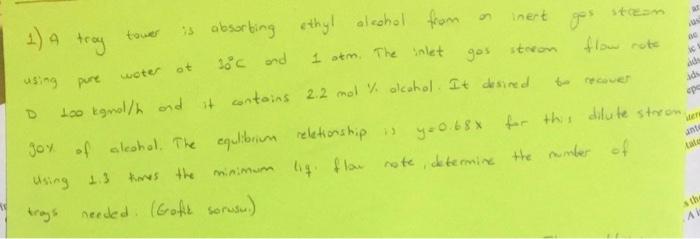 1) A tray tower is absorbing ethyl alcohol from an inert gas stream
using pure water at 30°c and 1 atm. The inlet gas stream flow rate
D 100 kgmol/h and it contains 2.2 mol % alcohol. It desired to recover
90% of alcohol. The equlibrium reletionship is y=0.68x for this dilute stream
Using 1.3 times the minimum liq. flow rate, determine the number of
trays needed. (Grafik sorusu.)